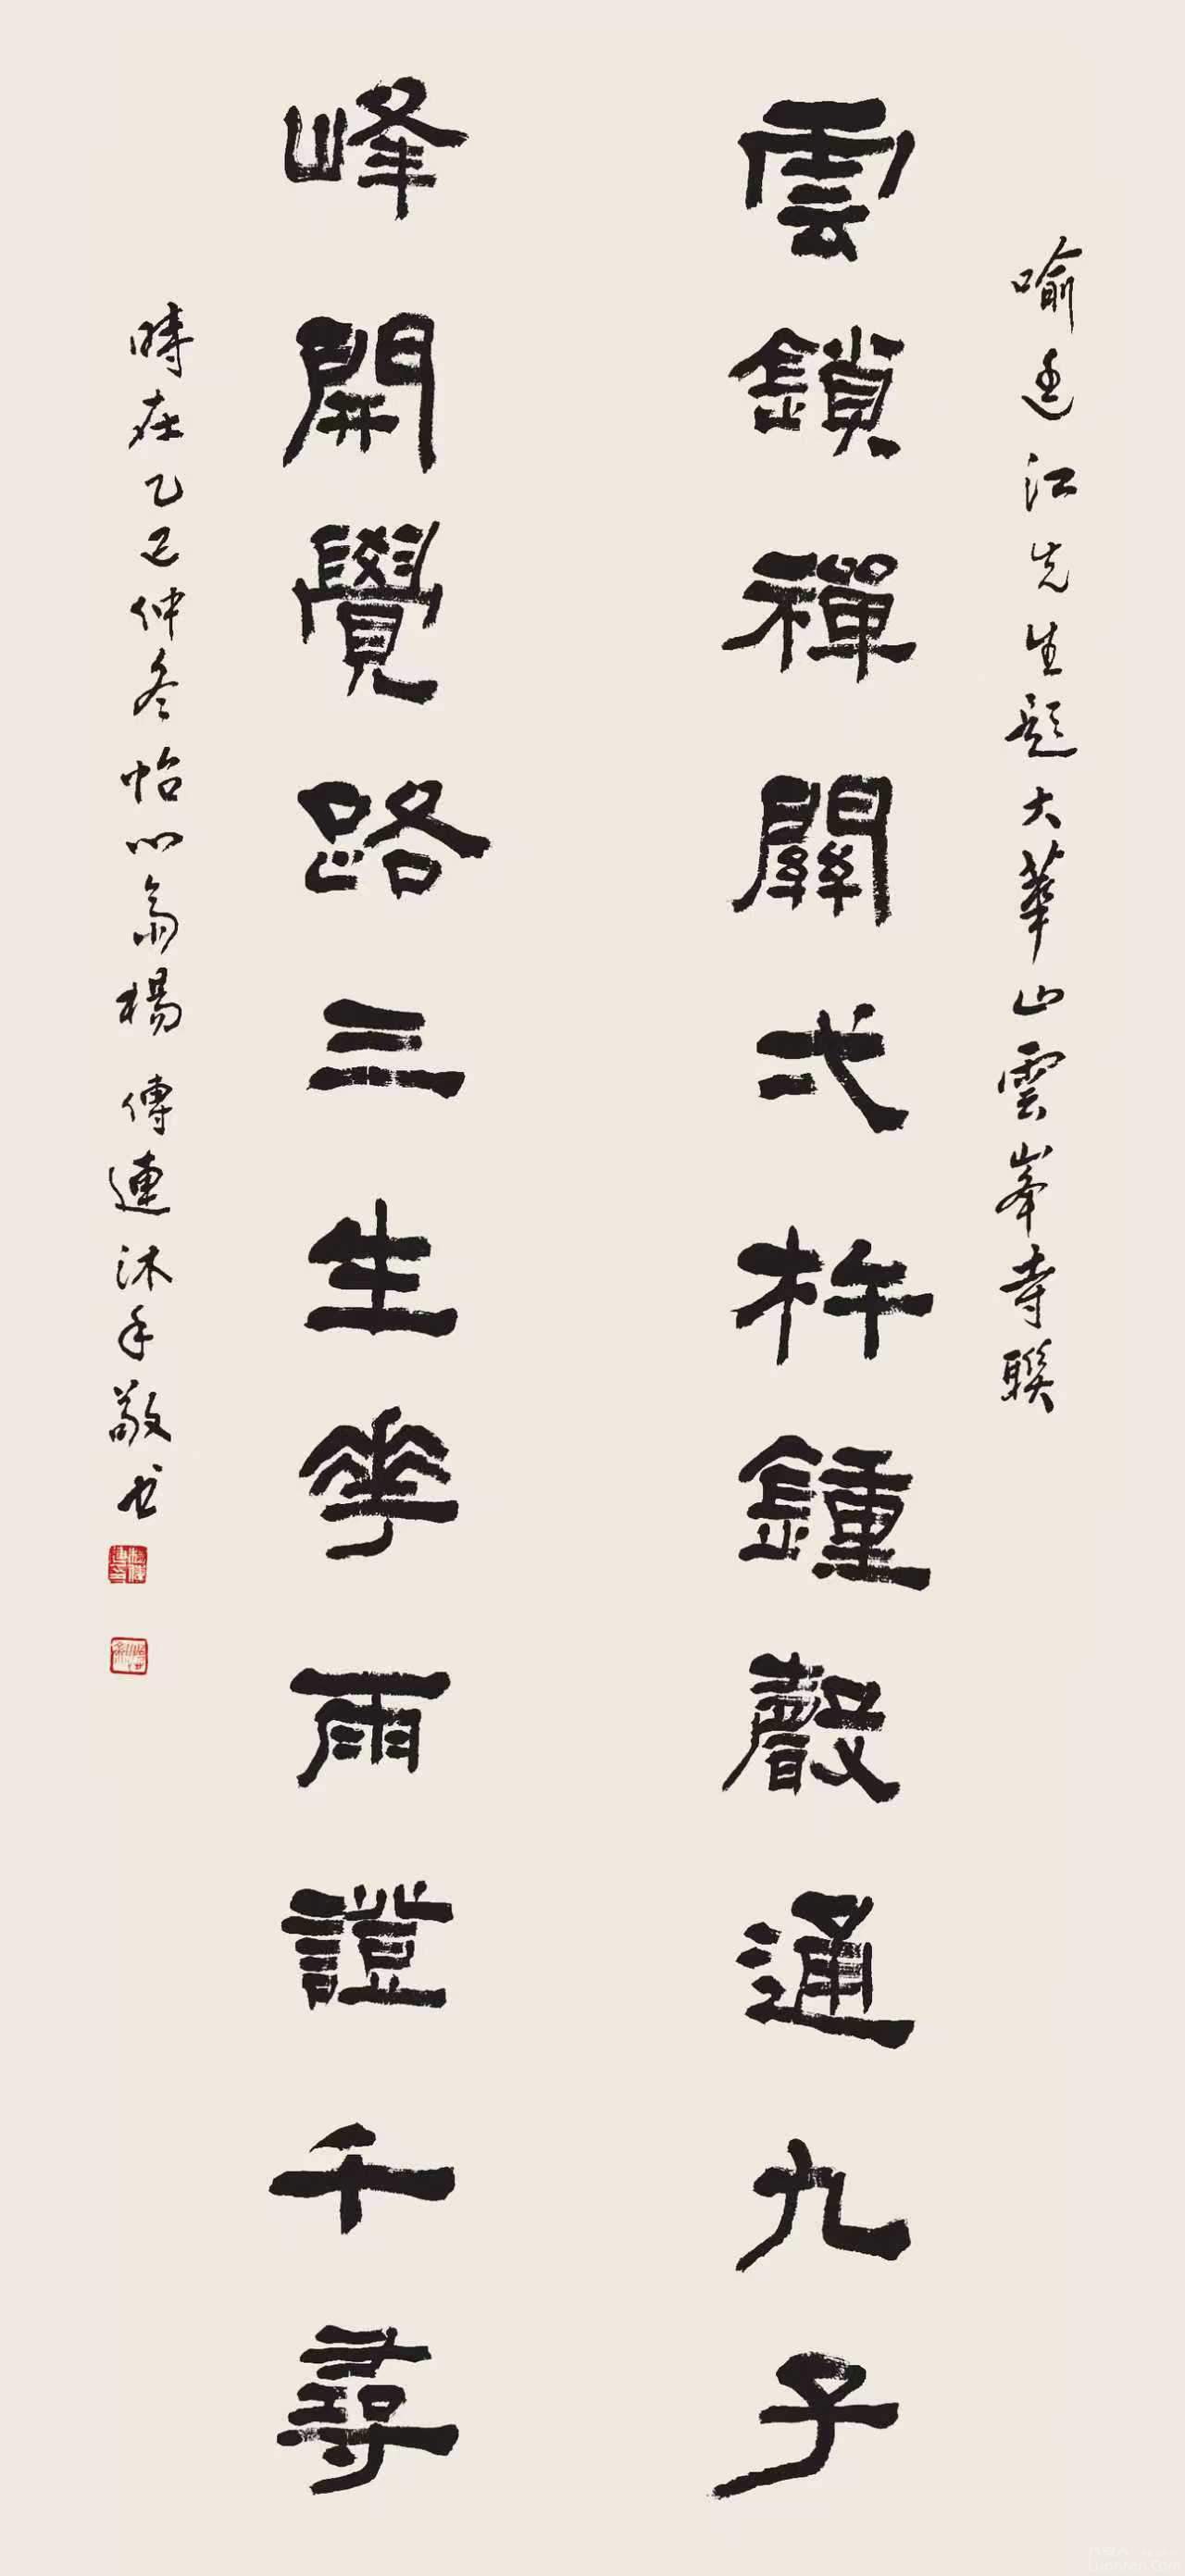 喻廷江先生題大華山雲峯寺聯
雲鎖禪關弌杵鍾聲通九子
峰開覺路三生花雨證千尋
時在乙巳仲冬怡心斋楊傳連沐手敬书